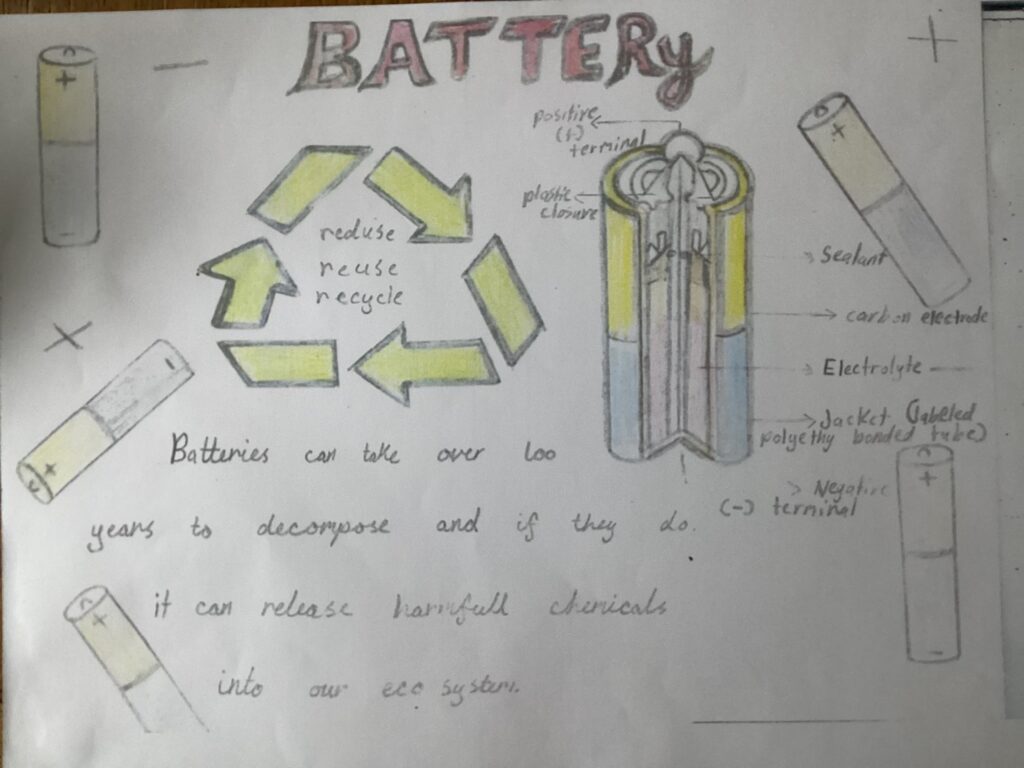 BATTERY
reduse
reuse
recycle
positive
(+)
terminal
plastic
closure
Sealant
carbon electrode
Electrolyte
Jacket (labeled
polyethy bonded tube)
Negative
(-) terminal
Batteries can take over 100
years to decompose and if they do.
it can release harmfull chemicals
into our eco system.